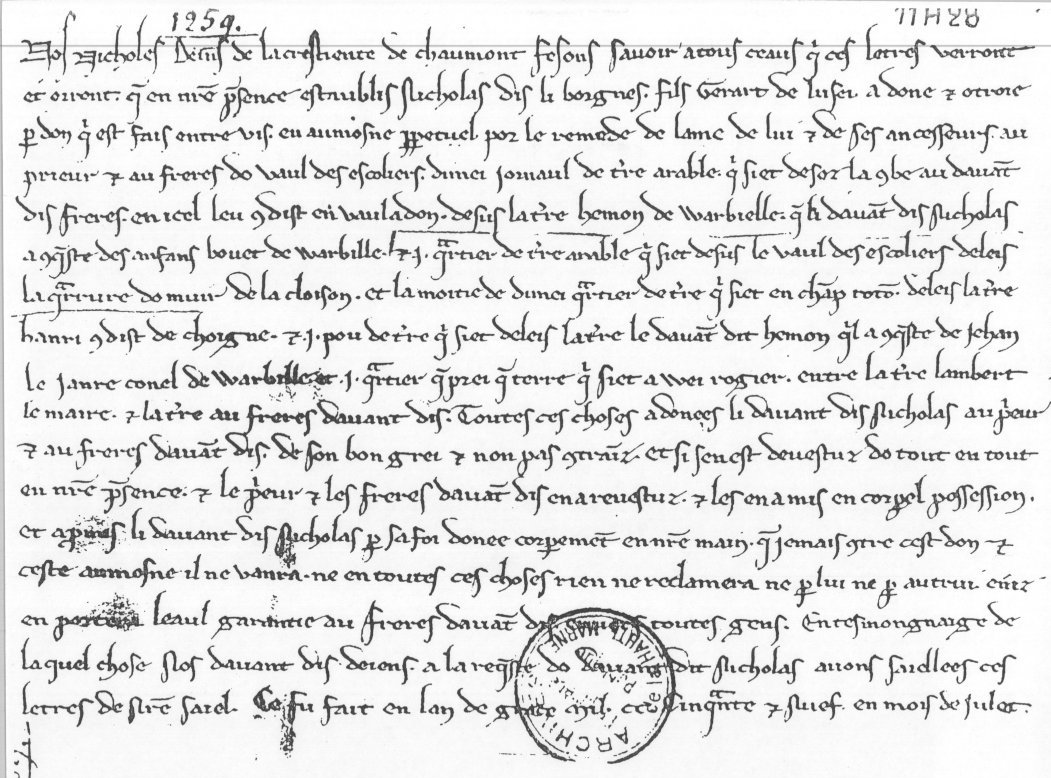 1259.
88H11
Nos Nicholes Deens de la crestiente de chaumont fesons savoir a tous ceaus q̇ ces letres verront
et orront. q̄ en nr̄e p̄sence establis Nicholas dis li borgnes. fils Gerart de lusei a done ⁊ otroie
ꝑ don q̇ est fais entre vis. en aumosne ꝑpetuel por le remede de lame de lui ⁊ de ses ancesseurs. au
prieur ⁊ au freres do vaul des escoliers. dimei jornaul de t̄re arable. q̇ siet desor la ꝯbe au davāt
dis freres. en icel leu ꝯdist en vauladon. desus la t̄re hemon de warbielle. q̄ li davāt dis Nicholas
a ꝯq̄ste des anfans bovet de warbille. et .j. qᵃrtier de t̄re arable q̇ siet desus le vaul des escoliers deleis
la qᵃrrure do mur de la cloison. et la moitie de dimei qᵃrtier de t̄re q̇ siet en chāp coto. deleis la t̄re
hanri ꝯdist de choigne. ⁊ .j. pou de t̄re q̇ siet deleis la t̄re le davāt dit hemon q̇l a ꝯq̄ste de Jehan
le janre conel de warbille. et .j. qᵃrtier q̄ prei q̄ terre q̇ siet a wei rogier. entre la t̄re lambert
le maire. ⁊ la t̄re au freres davant dis. Toutes ces choses a donees li davant dis Nicholas au ṗeur
⁊ au freres davāt dis. de son bon grei ⁊ non pas ꝯtraīz. et si sen est devestuz do tout en tout
en nr̄e p̄sence. ⁊ le ṗeur ⁊ les freres davāt dis en a revestuz. ⁊ les en a mis en corꝑel possession.
et a li davant dis Nicholas ꝑ sa foi donee corꝑemēt en nr̄e main. q̄ jemais ꝯtre cest don ⁊
ceste aumosne il ne vanra. ne en toutes ces choses rien ne reclamera ne ꝑ lui ne ꝑ autrui. einz
en portera leaul garantie au freres davāt dis toutes gens. En tesmongnaige de
laquel chose Nos davant dis deiens. a la req̄ste do davant dit Nicholas avons saellees ces
letres de nr̄e sael. Ce fu fait en lan de grace mil. cc. Cinqᵃnte ⁊ Nuef. en mois de julet.
ARCHI HAUTE MARNE